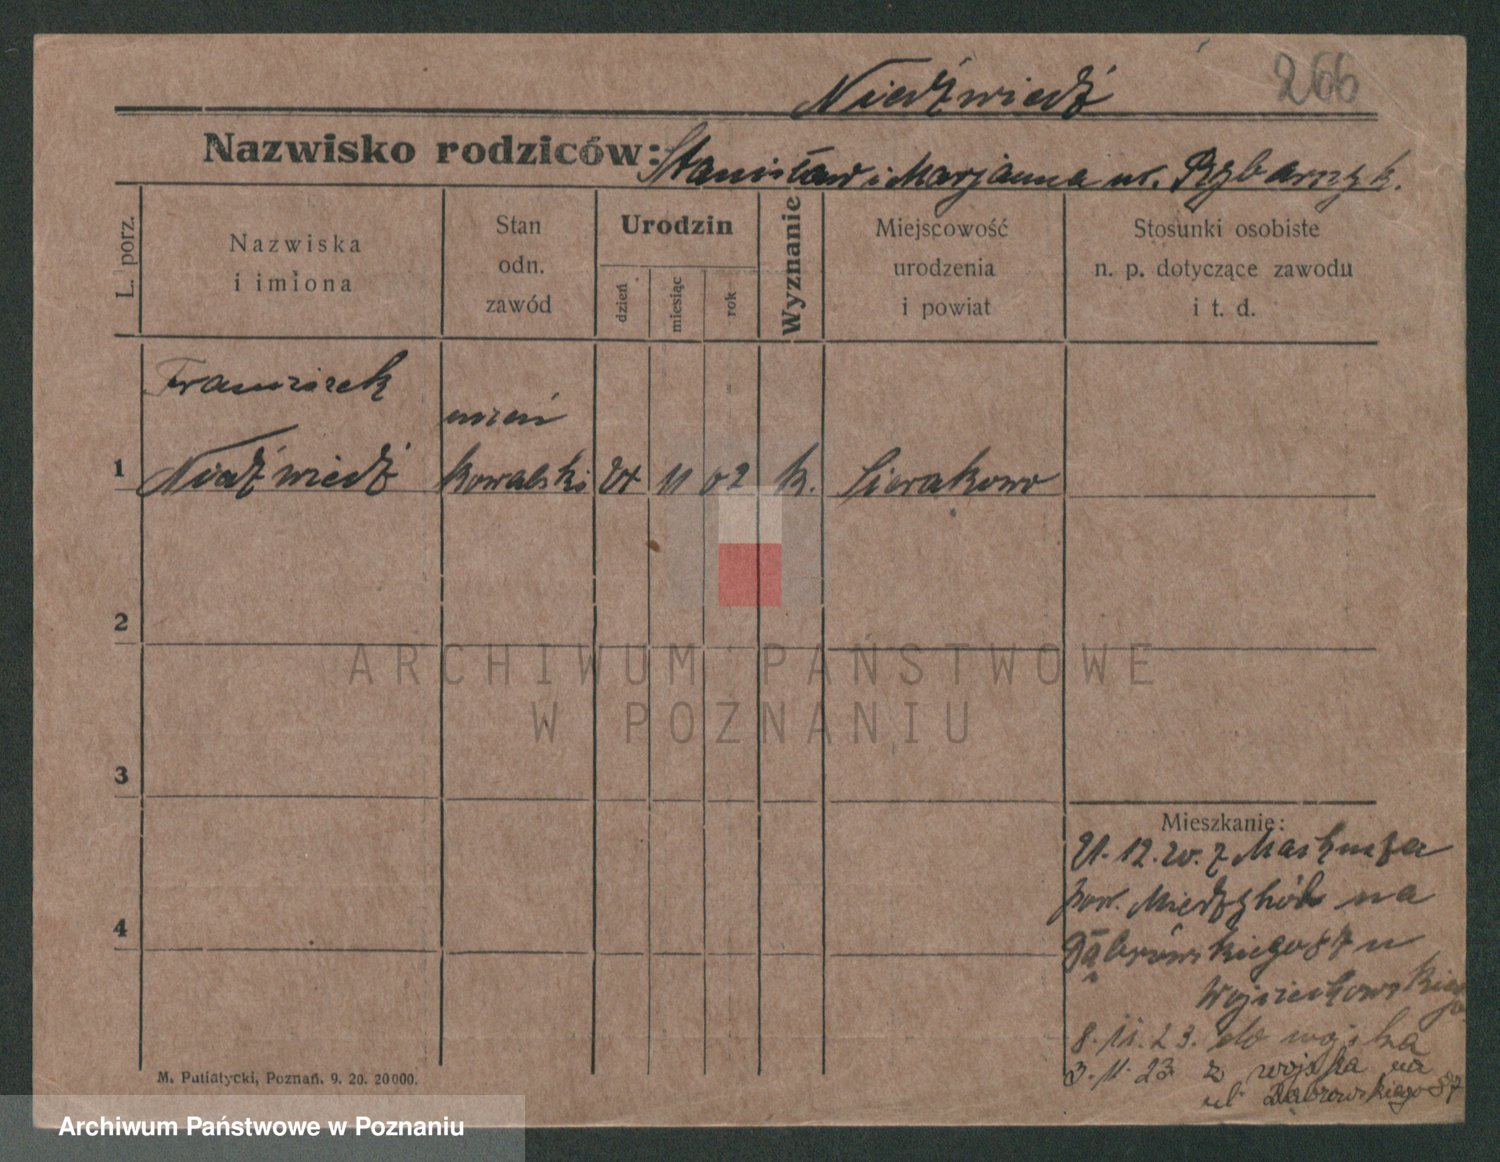 266
Niedźwiedź
Nazwisko rodziców: Stanisław i Marjanna ur. Rybarczyk.
L. porz.
Nazwiska
i imiona
Stan
odn.
zawód
Urodzin
dzień
miesiąc
rok
Wyznanie
Miejscowość
urodzenia
i powiat
Stosunki osobiste
n. p. dotyczące zawodu
i t. d.
Franciszek
uczeń
1 Niedźwiedź kowalski 11 02 k. Sierakowo
2
3
4
Mieszkanie:
21. 12. 20. z
pow. Międzychód na
Dąbrówskiego 87 u
Wojciechowskiego
8. 11. 23. do wojska
3. 11. 23 z wojska na
ul Dąbrowskiego 87
M. Putiatycki, Poznań. 9. 20. 20000.
ARCHIWUM PAŃSTWOWE
W POZNANIU
Archiwum Państwowe w Poznaniu